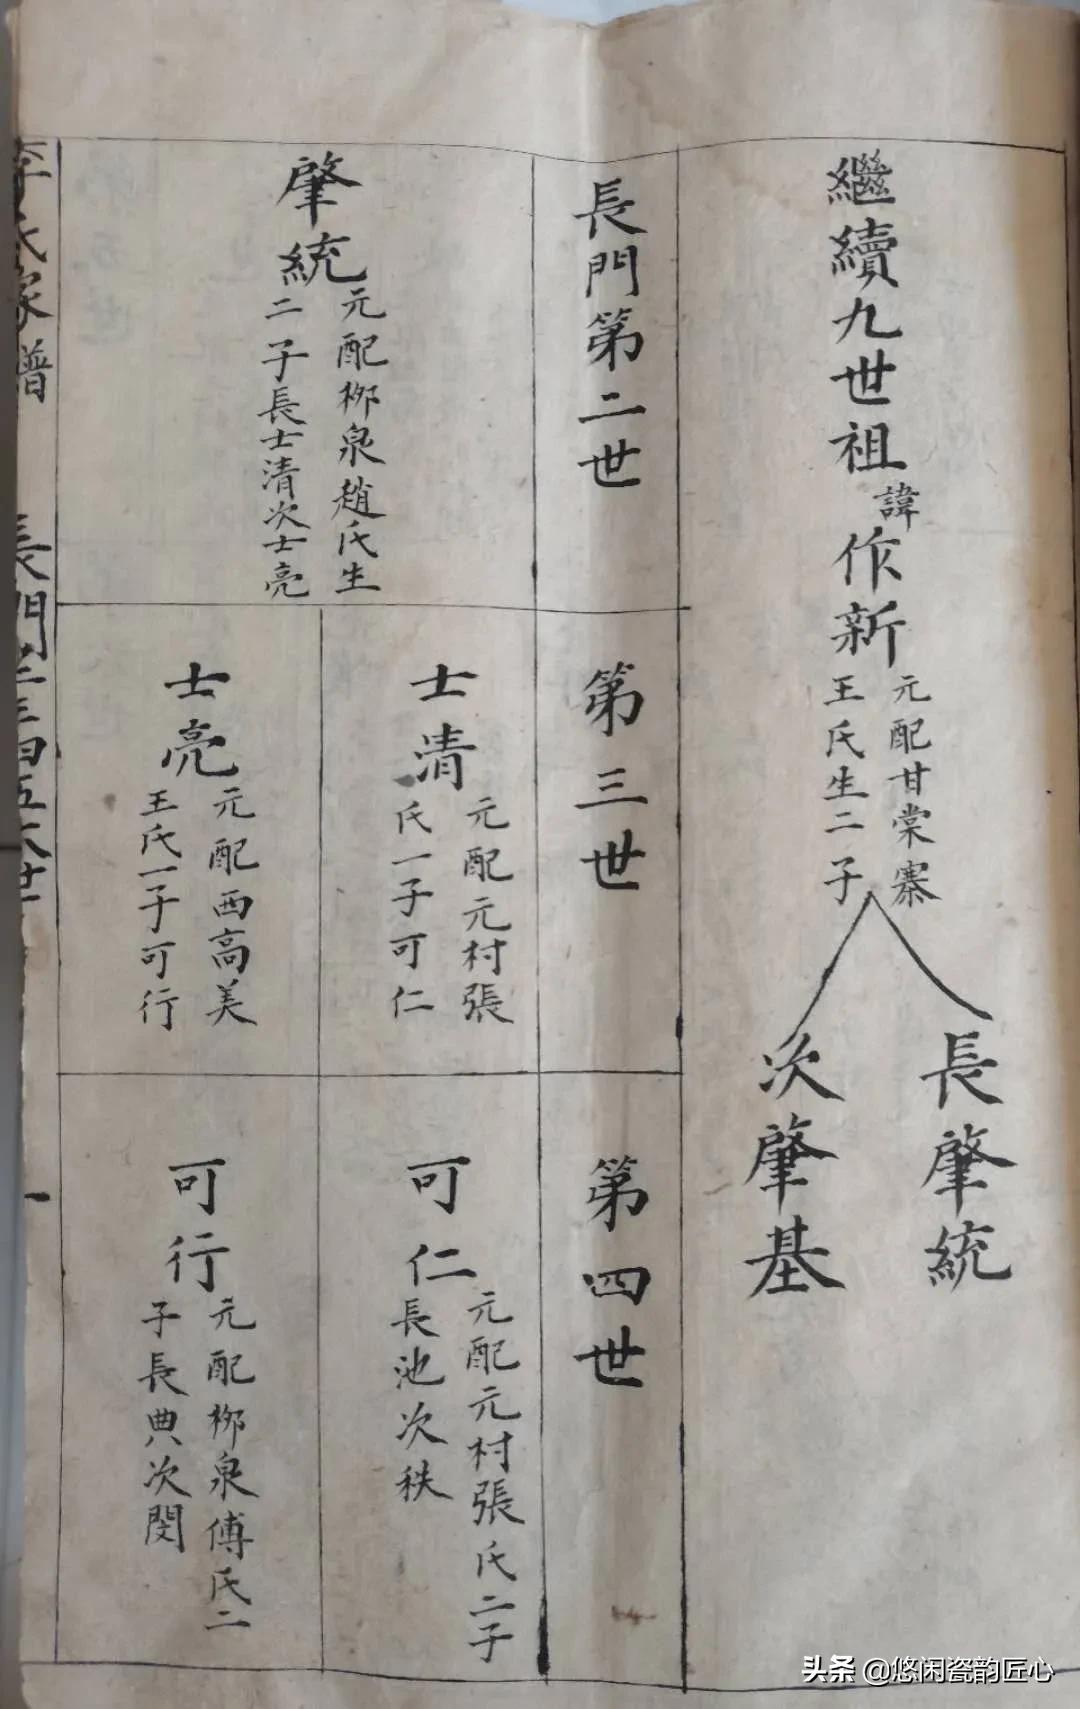 繼續九世祖諱作新
元配甘棠寨
王氏生二子
長肇統
次肇基
長門第二世
肇統
元配柳泉趙氏生
二子長士清次士亮
第三世
士清
元配元村張
氏一子可仁
士亮
元配西高美
王氏一子可行
第四世
可仁
元配元村張氏二子
長池次秩
可行
元配柳泉傅氏二
子長典次閔
李氏家譜
長門二三四五六世
一
头条 @悠闲瓷韵匠心